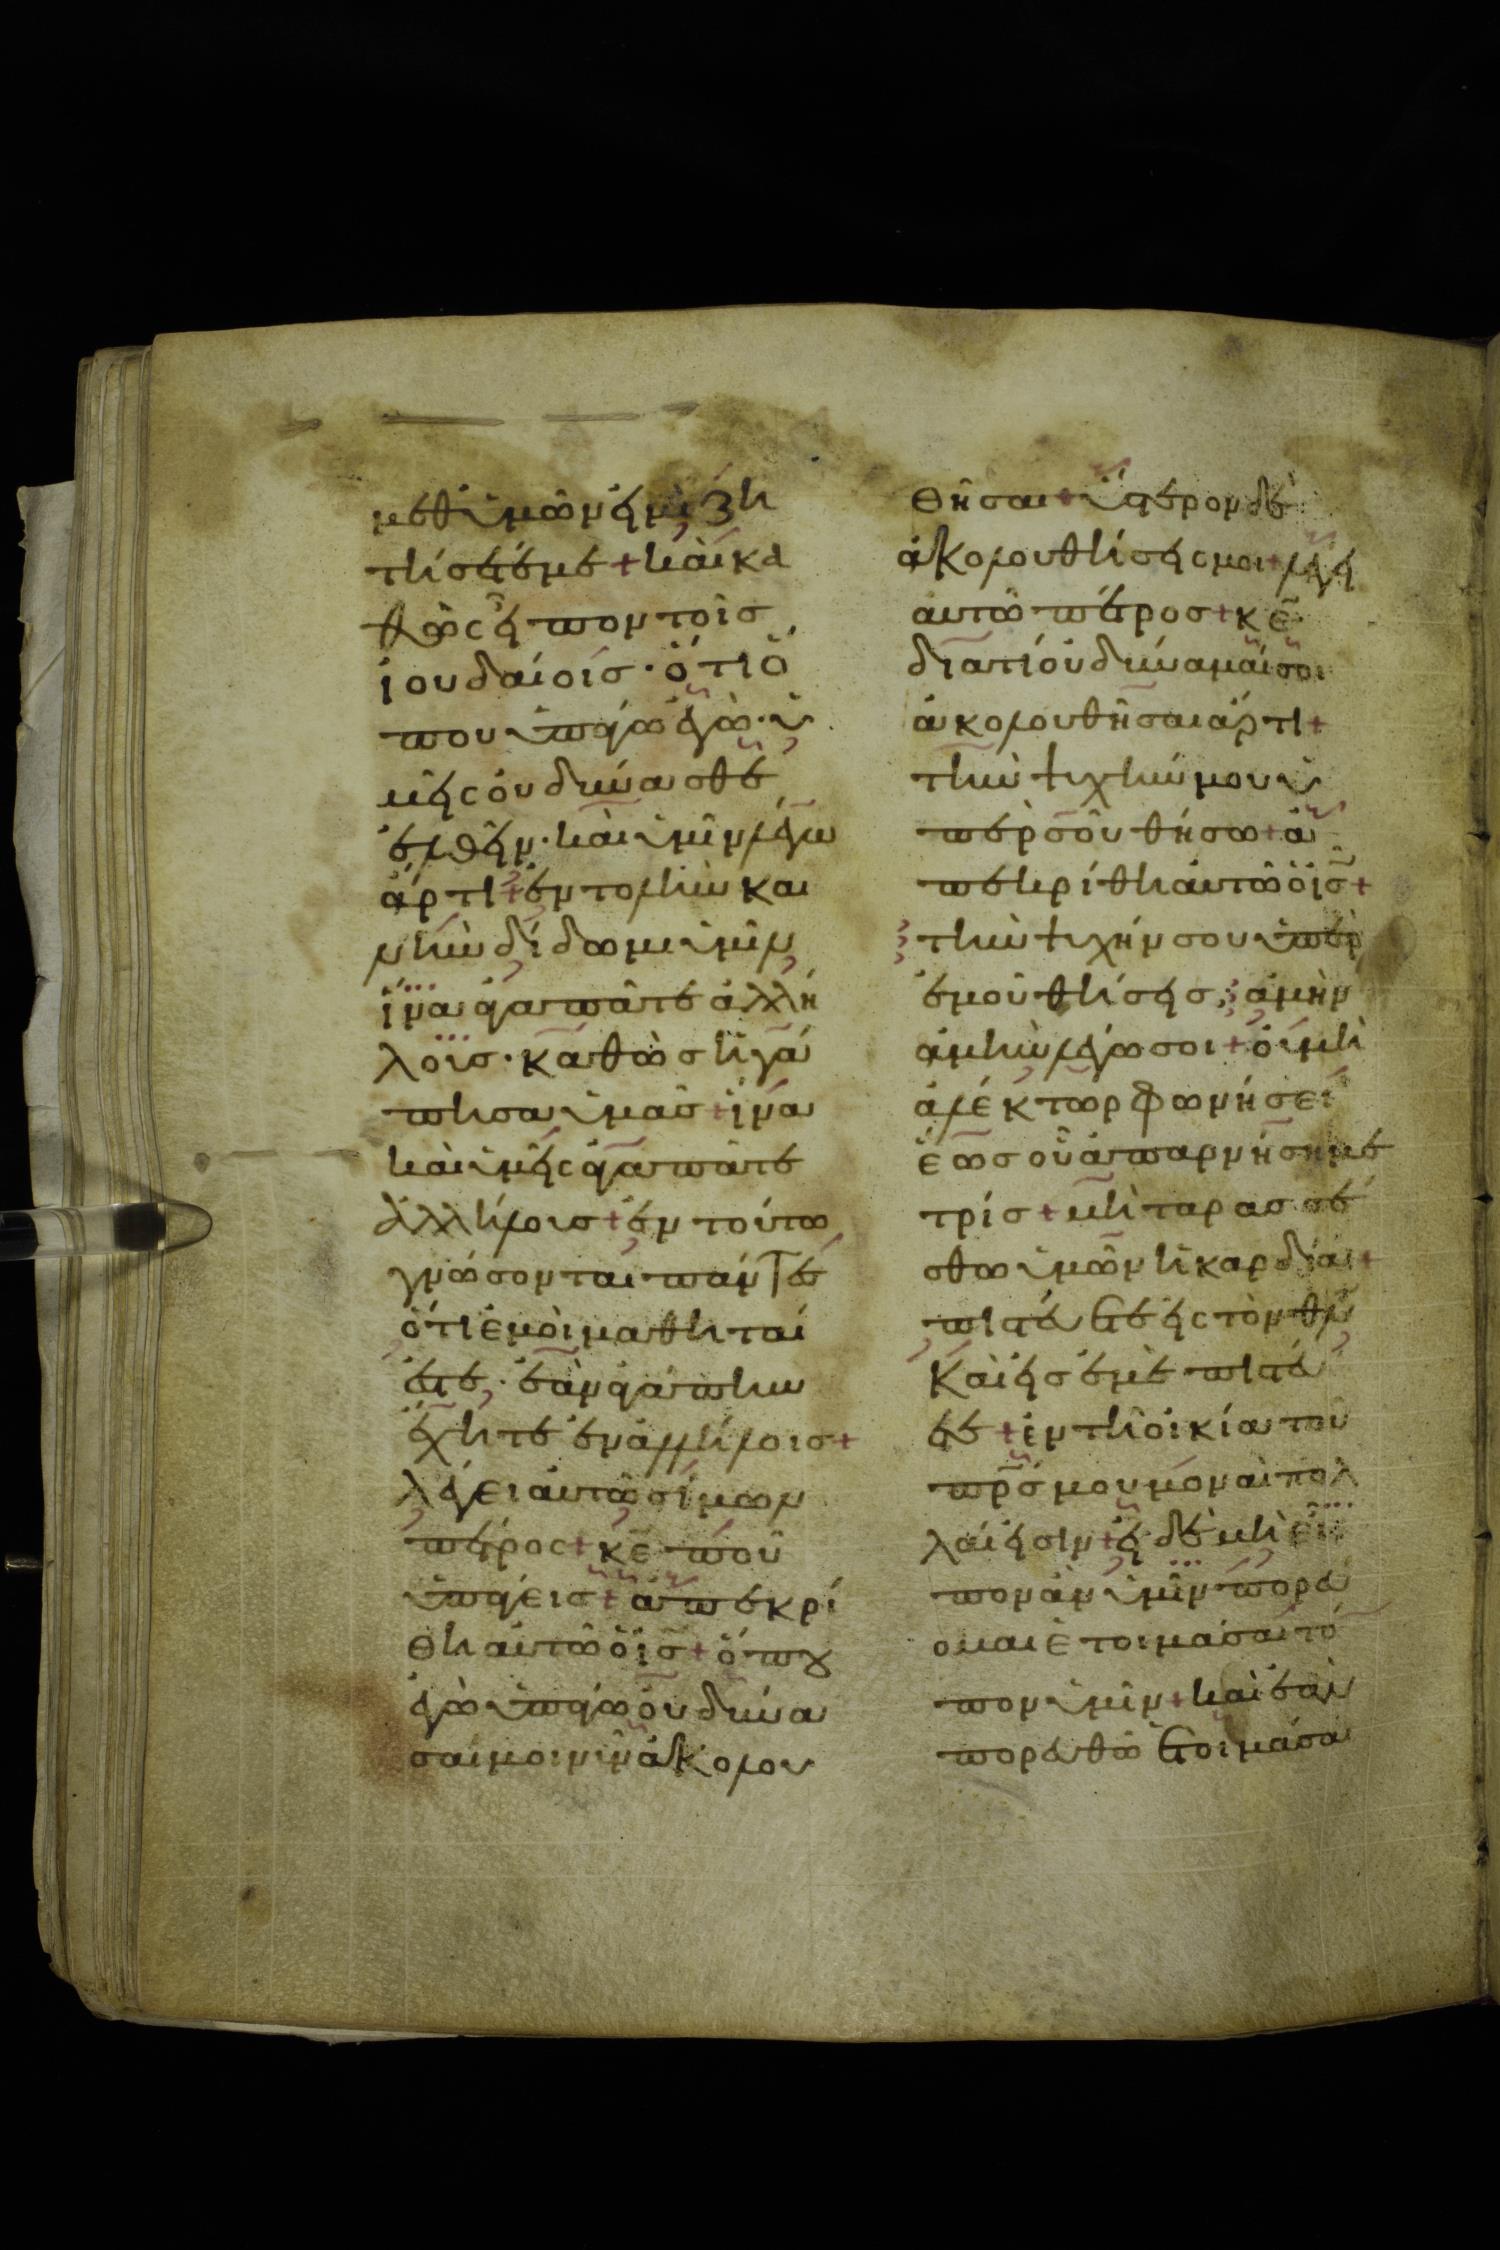 μεθ ὑμῶν εἰμὶ ζη
τήσετέ με + καὶ κα
θὼς εἶπον τοῖσ
ἰουδαίοισ · ὅτι ὅ
που ὑπάγω ἐγὼ · ὑ
μεῖς οὐ δύνασθε
ἐλθεῖν · καὶ ὑμῖν λέγω
ἄρτι + ἐντολὴν και
νὴν δίδωμι ὑμῖν
ἵνα ἀγαπᾶτε ἀλλή
λοισ · καθὼσ ἠγά
πησα ὑμᾶσ + ἵνα
καὶ ὑμεῖς ἀγαπᾶτε
ἀλλήλοισ + ἐν τούτω
γνώσονται πάντεσ
ὅτι ἐμοὶ μαθηταί
ἐστε · ἐὰν ἀγάπην
ἔχητε ἐν ἀλλήλοισ +
λέγει αὐτῶ σίμων
πέτροσ + κε ποῦ
ὑπάγεισ + ἀπεκρί
θη αὐτῶ ὁ ισ + ὅπου
ἐγὼ ὑπάγω οὐ δύνα
σαί μοι νῦν ἀκολου
θῆσαι + ὕστερον δὲ
ἀκολουθήσεις μοι + λέγει
αὐτῶ πέτροσ + κε
διατί οὐ δύναμαί σοι
ἀκολουθῆσαι ἄρτι +
τὴν ψυχήν μου ὑ
πὲρ σοῦ θήσω + ἀ
πεκρίθη αὐτῶ ὁ ισ +
τὴν ψυχήν σου ὑπὲρ
ἐμοῦ θήσεισ ; ἀμὴν
ἀμὴν λέγω σοι + οὐ μὴ
ἀλέκτωρ φωνήσει
ἕωσ οὗ ἀπαρνήση με
τρίσ + μὴ ταρασσέ
σθω ὑμῶν ἡ καρδία +
πιστεύετε εἰς τὸν θν
καὶ εἰσ ἐμὲ πιστεύ
ετε + ἐν τῆ οἰκία τοῦ
πρσ μου μοναὶ πολ
λαί εἰσιν + εἰ δὲ μὴ εἶ
πον ἂν ὑμῖν πορεύ
ομαι ἑτοιμάσαι τό
πον ὑμῖν + καὶ ἐὰν
πορευθῶ ἑτοιμάσα